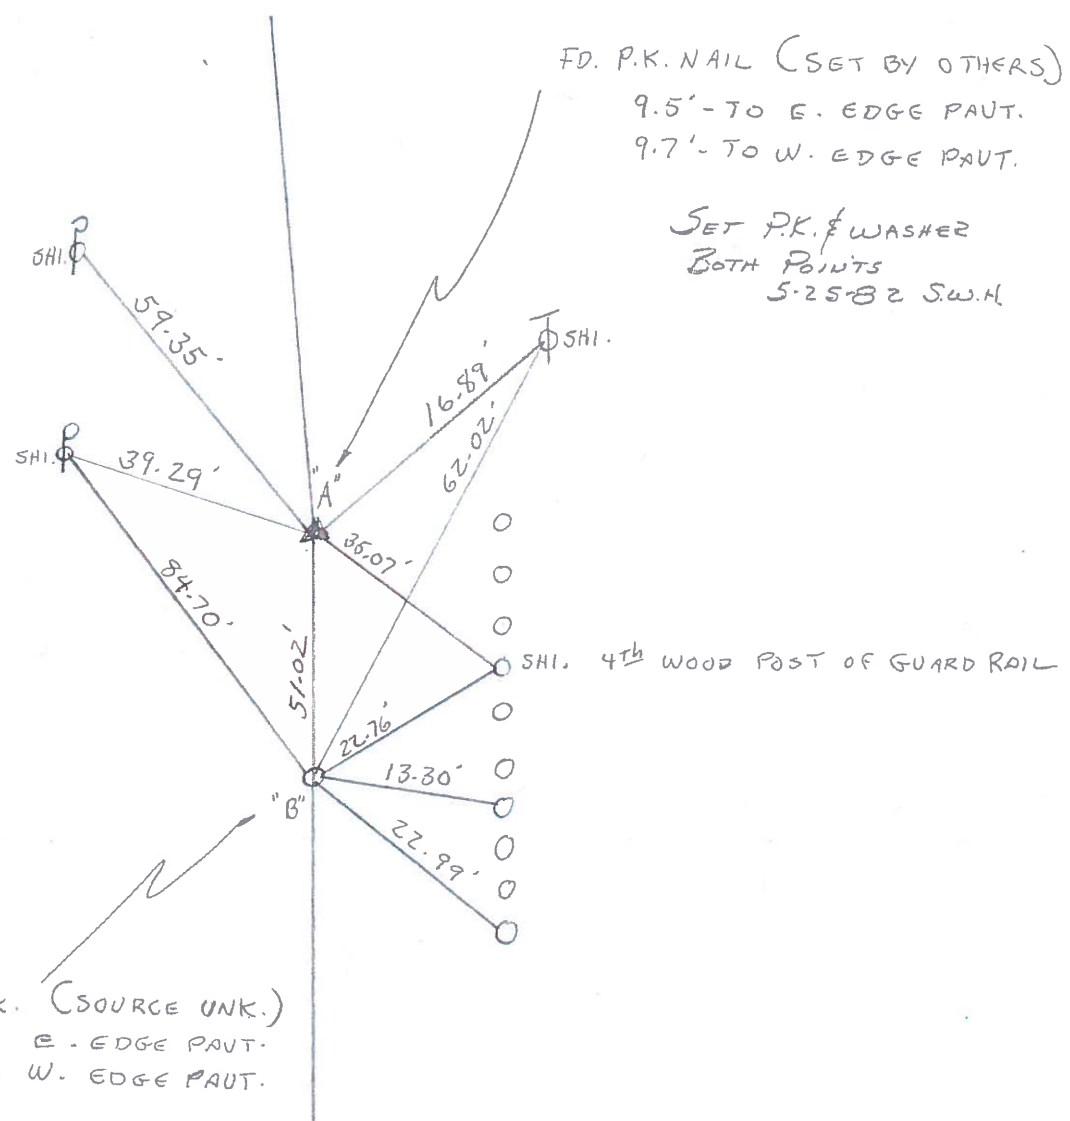 FD. P.K. NAIL (SET BY OTHERS)
9.5'- TO E. EDGE PAVT.
9.7'- TO W. EDGE PAVT.
SET P.K. & WASHER
BOTH POINTS
5-25-82 S.W.H.
SHI.
59.35'
SHI.
16.89'
62.02'
SHI.
39.29'
"A"
35.07'
84.70'
51.02'
SHI. 4th WOOD POST OF GUARD RAIL
22.76'
13.30'
"B"
22.99'
(SOURCE UNK.)
E. EDGE PAVT.
W. EDGE PAVT.